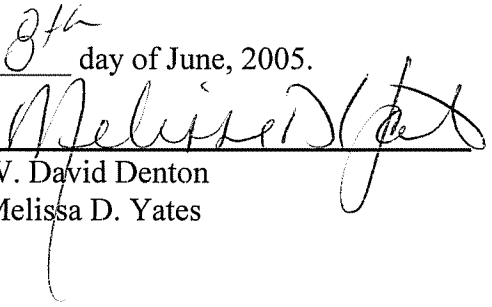 8th day of June, 2005.
Melissa D Yates
V. David Denton
Melissa D. Yates